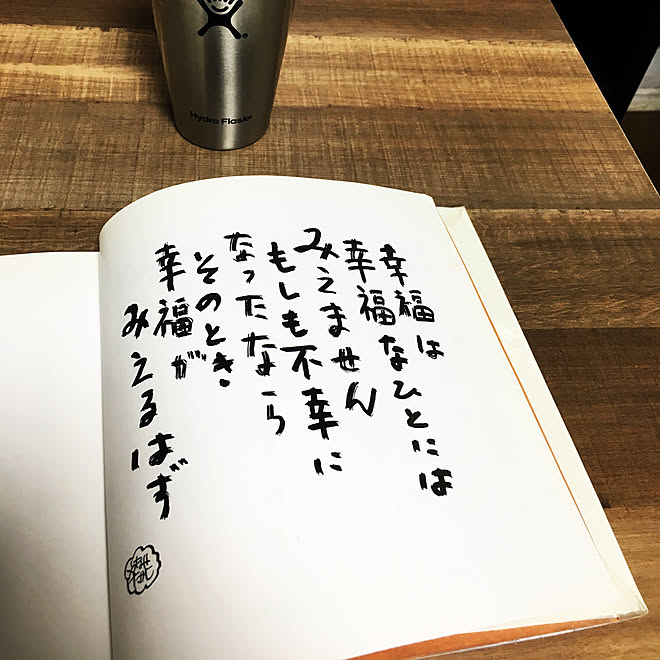 Hydro Flask
幸福は
幸福なひとには
みえません
もしも不幸に
なったなら
そのとき
幸福が
みえるはず